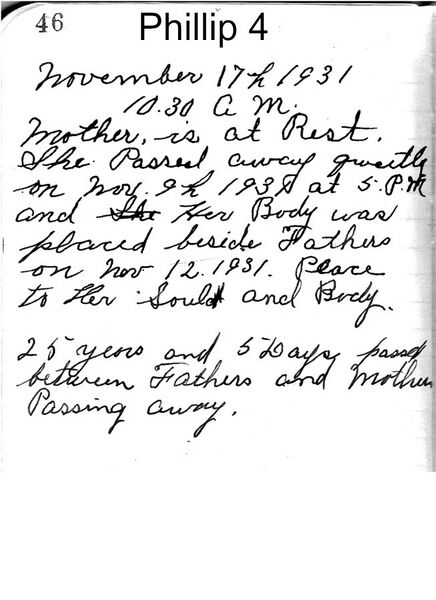 46 Phillip 4
November 17th 1931
10.30 A M.
Mother, is at Rest.
She Passed away qweitly
on Nov. 9th 1931 at 5. P.M
and She Her Body was
placed beside Fathers
on Nov 12. 1931. Peace
to Her Soul and Body.
25 years and 5 Days, passed
between Fathers and Mother
Passing away.